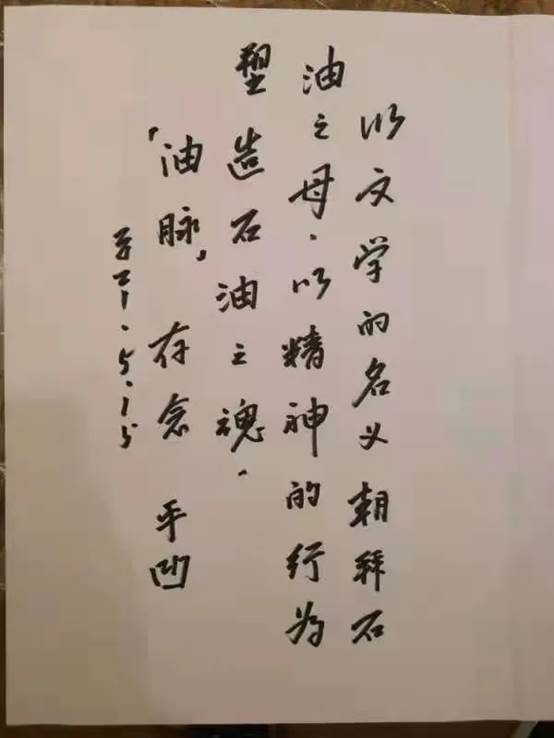 以文学的名义朝拜石
油之母.以精神的行为
塑造石油之魂.
"油脉"存念 平凹